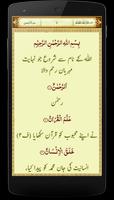 بِسْمِ اللهِ الرَّحْمٰنِ الرَّحِيْمِ
اللہ کے نام سے شروع جو نہایت
مہربان رحم والا
اَلرَّحْمٰنُ ۙ﴿۱﴾
رحمٰن
عَلَّمَ الْقُرْاٰنَ ؕ﴿۲﴾
نے اپنے محبوب کو قرآن سکھایا (ف۲)
خَلَقَ الْاِنْسَانَ ۙ﴿۳﴾
انسانیت کی جان محمد کو پیدا کیا،